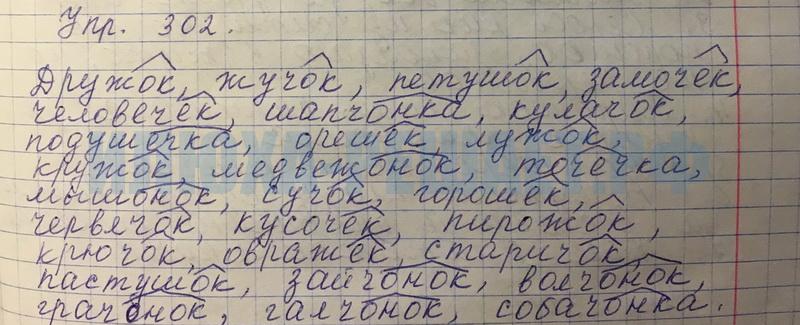 Упр. 302.
Дружок, жучок, петушок, замочек,
человечек, шапчонка, кулачок,
подушечка, орешек, лужок,
кружок, медвежонок, точечка,
мышонок, сучок, горошек,
червячок, кусочек, пирожок,
крючок, овражек, старичок,
пастушок, зайчонок, волчонок,
грачонок, галчонок, собачонка.